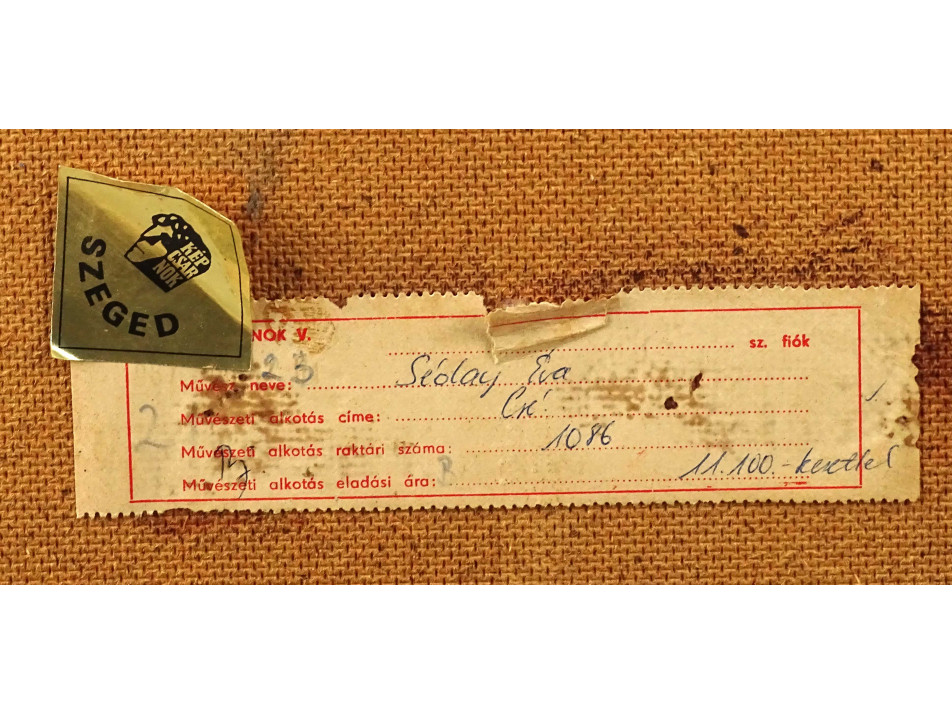 KÉP
CSAR
NOK
SZEGED
NOK V.
sz. fiók
23
Művész neve: Séday Éva
Művészeti alkotás címe:
2
Művészeti alkotás raktári száma: 1086
Művészeti alkotás eladási ára: 11.100.- kerettel